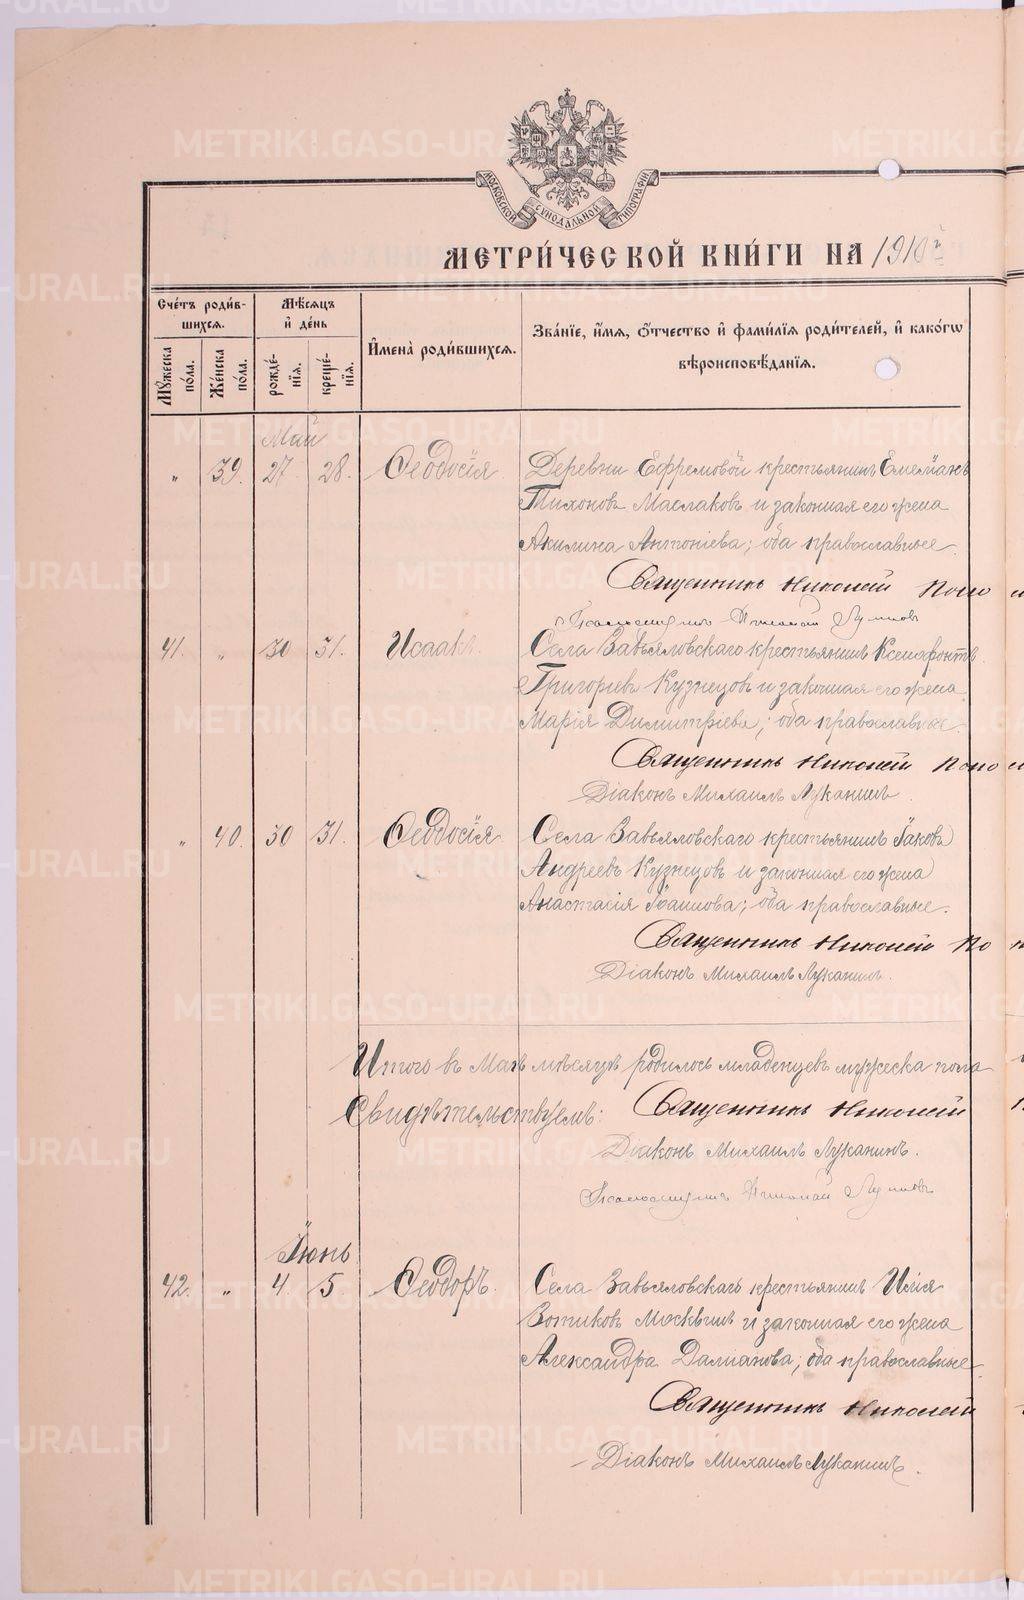 МОСКОВСКОЙ СѴНОДАЛЬНОЙ ТИПОГРАФІИ
МЕТРИ́ЧЕСКОЙ КНИ́ГИ НА 1910й
Сче́тъ роди́в-
шихся.
Мѣ́сяцъ
и҆ де́нь
И҆мена̀ роди́вшихся.
Зва́нїе, и҆́мя, ѻ҆́тчество и҆ фами́лїя роди́телей, и҆ како́гѡ
вѣроисповѣ́данїя.
Мꙋ́жеска
по́ла.
Же́нска
по́ла.
рожде́-
нїя.
креще́-
нїя.
Май
„ 39. 27. 28. Ѳеодосія Деревни Ефремовой крестьянинъ Емелианъ
Тихоновъ Маслаковъ и законная его жена
Акилина Антоніева; оба православные.
Священникъ Николай Попо
Псаломщикъ Николай
41. „ 30 31. Исаакъ. Села Завьяловскаго крестьянинъ Ксенофонтъ
Григоріевъ Кузнецовъ и законная его жена
Марія Димитріева; оба православные.
Священникъ Николай Попо
Діаконъ Михаилъ Луканинъ
„ 40. 30 31. Ѳеодосія Села Завьяловскаго крестьянинъ Іаковъ
Андреевъ Кузнецовъ и законная его жена
Анастасія Іоаннова; оба православные.
Священникъ Николай По
Діаконъ Михаилъ Луканинъ.
Итого въ Маѣ мѣсяцѣ родилось младенцевъ мужеска пола
Свидѣтельствуемъ: Священникъ Николай
Діаконъ Михаилъ Луканинъ.
Псаломщикъ Николай
Іюнь
42. „ 4. 5. Ѳеодоръ. Села Завьяловскаго крестьянинъ Илія
Зотиковъ Москвинъ и законная его жена
Александра Далианова; оба православные.
Священникъ Николай
Діаконъ Михаилъ Луканинъ.
METRIKI.GASO-URAL.RU